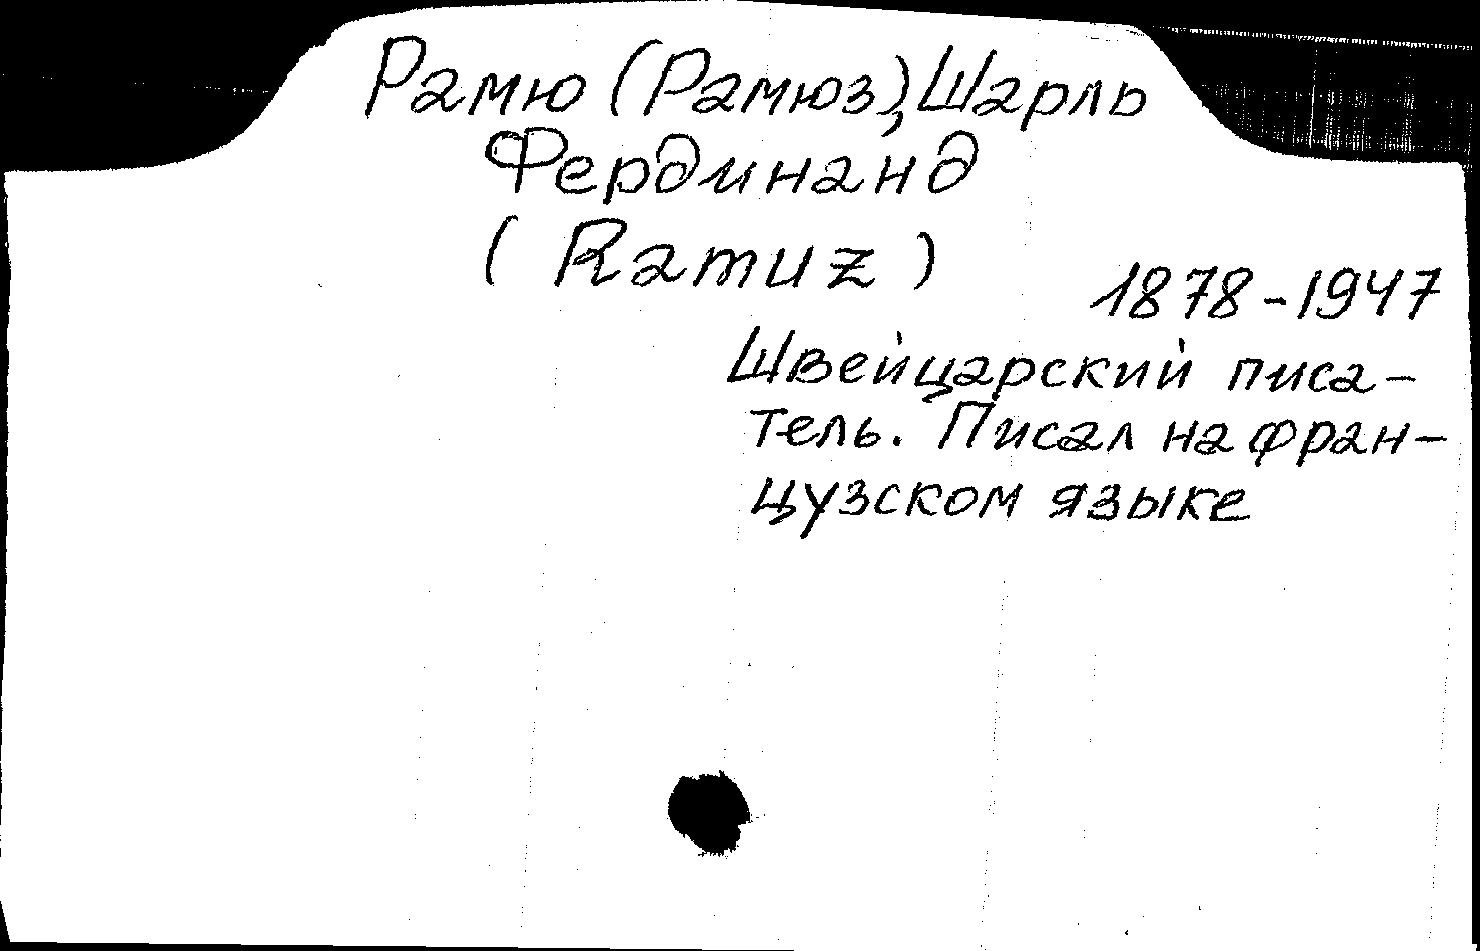 Рамю (Рамюз), Шарль
Фердинанд
(Ramuz)
1878-1947
Швейцарский писа-
тель. Писал на фран-
цузском языке